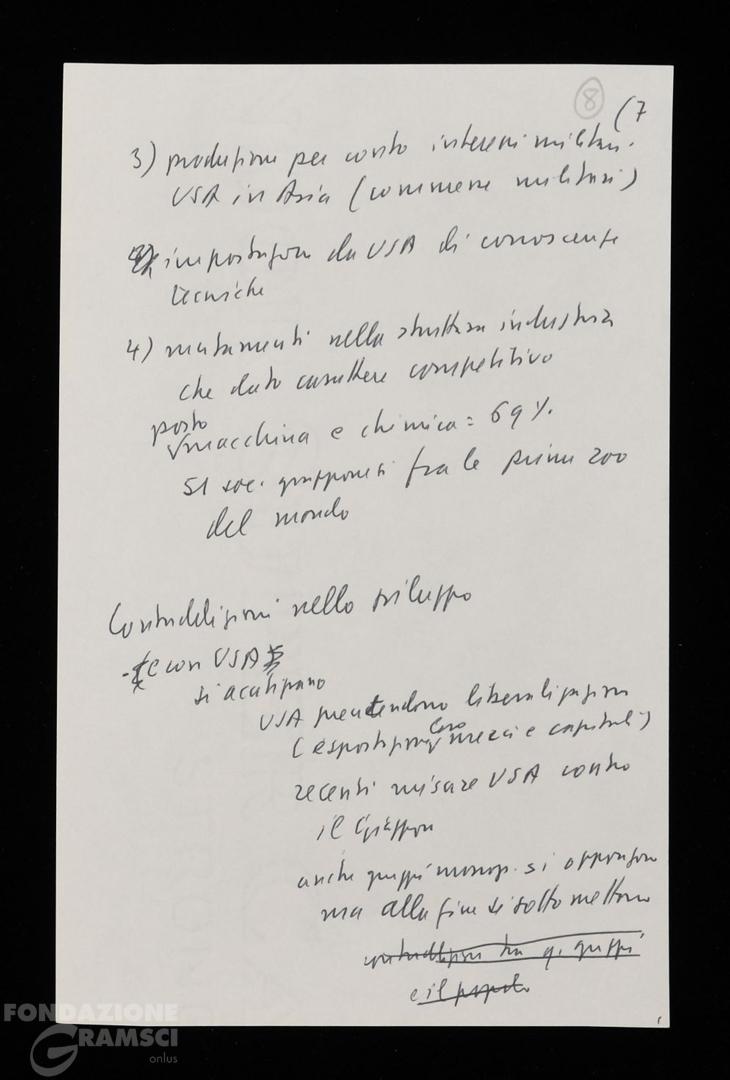 8
(7
3) produzione per conto interessi militari
USA in Asia (commesse militari)
importazione da USA di conoscenze
tecniche
4) mutamenti nella struttura industria
che dato carattere competitivo
posto
macchina e chimica = 69 %.
51 soc. giapponesi fra le prime 200
del mondo
Contraddizioni nello sviluppo
- e con USA
si acutizzano
USA pretendono liberalizzazione
loro
(esportazione merci e capitali)
recenti misure USA contro
il Giappone
anche gruppi monop. si oppongono
ma alla fine si sottomettono
contraddizioni tra g. gruppi
e il popolo
FONDAZIONE
GRAMSCI
onlus